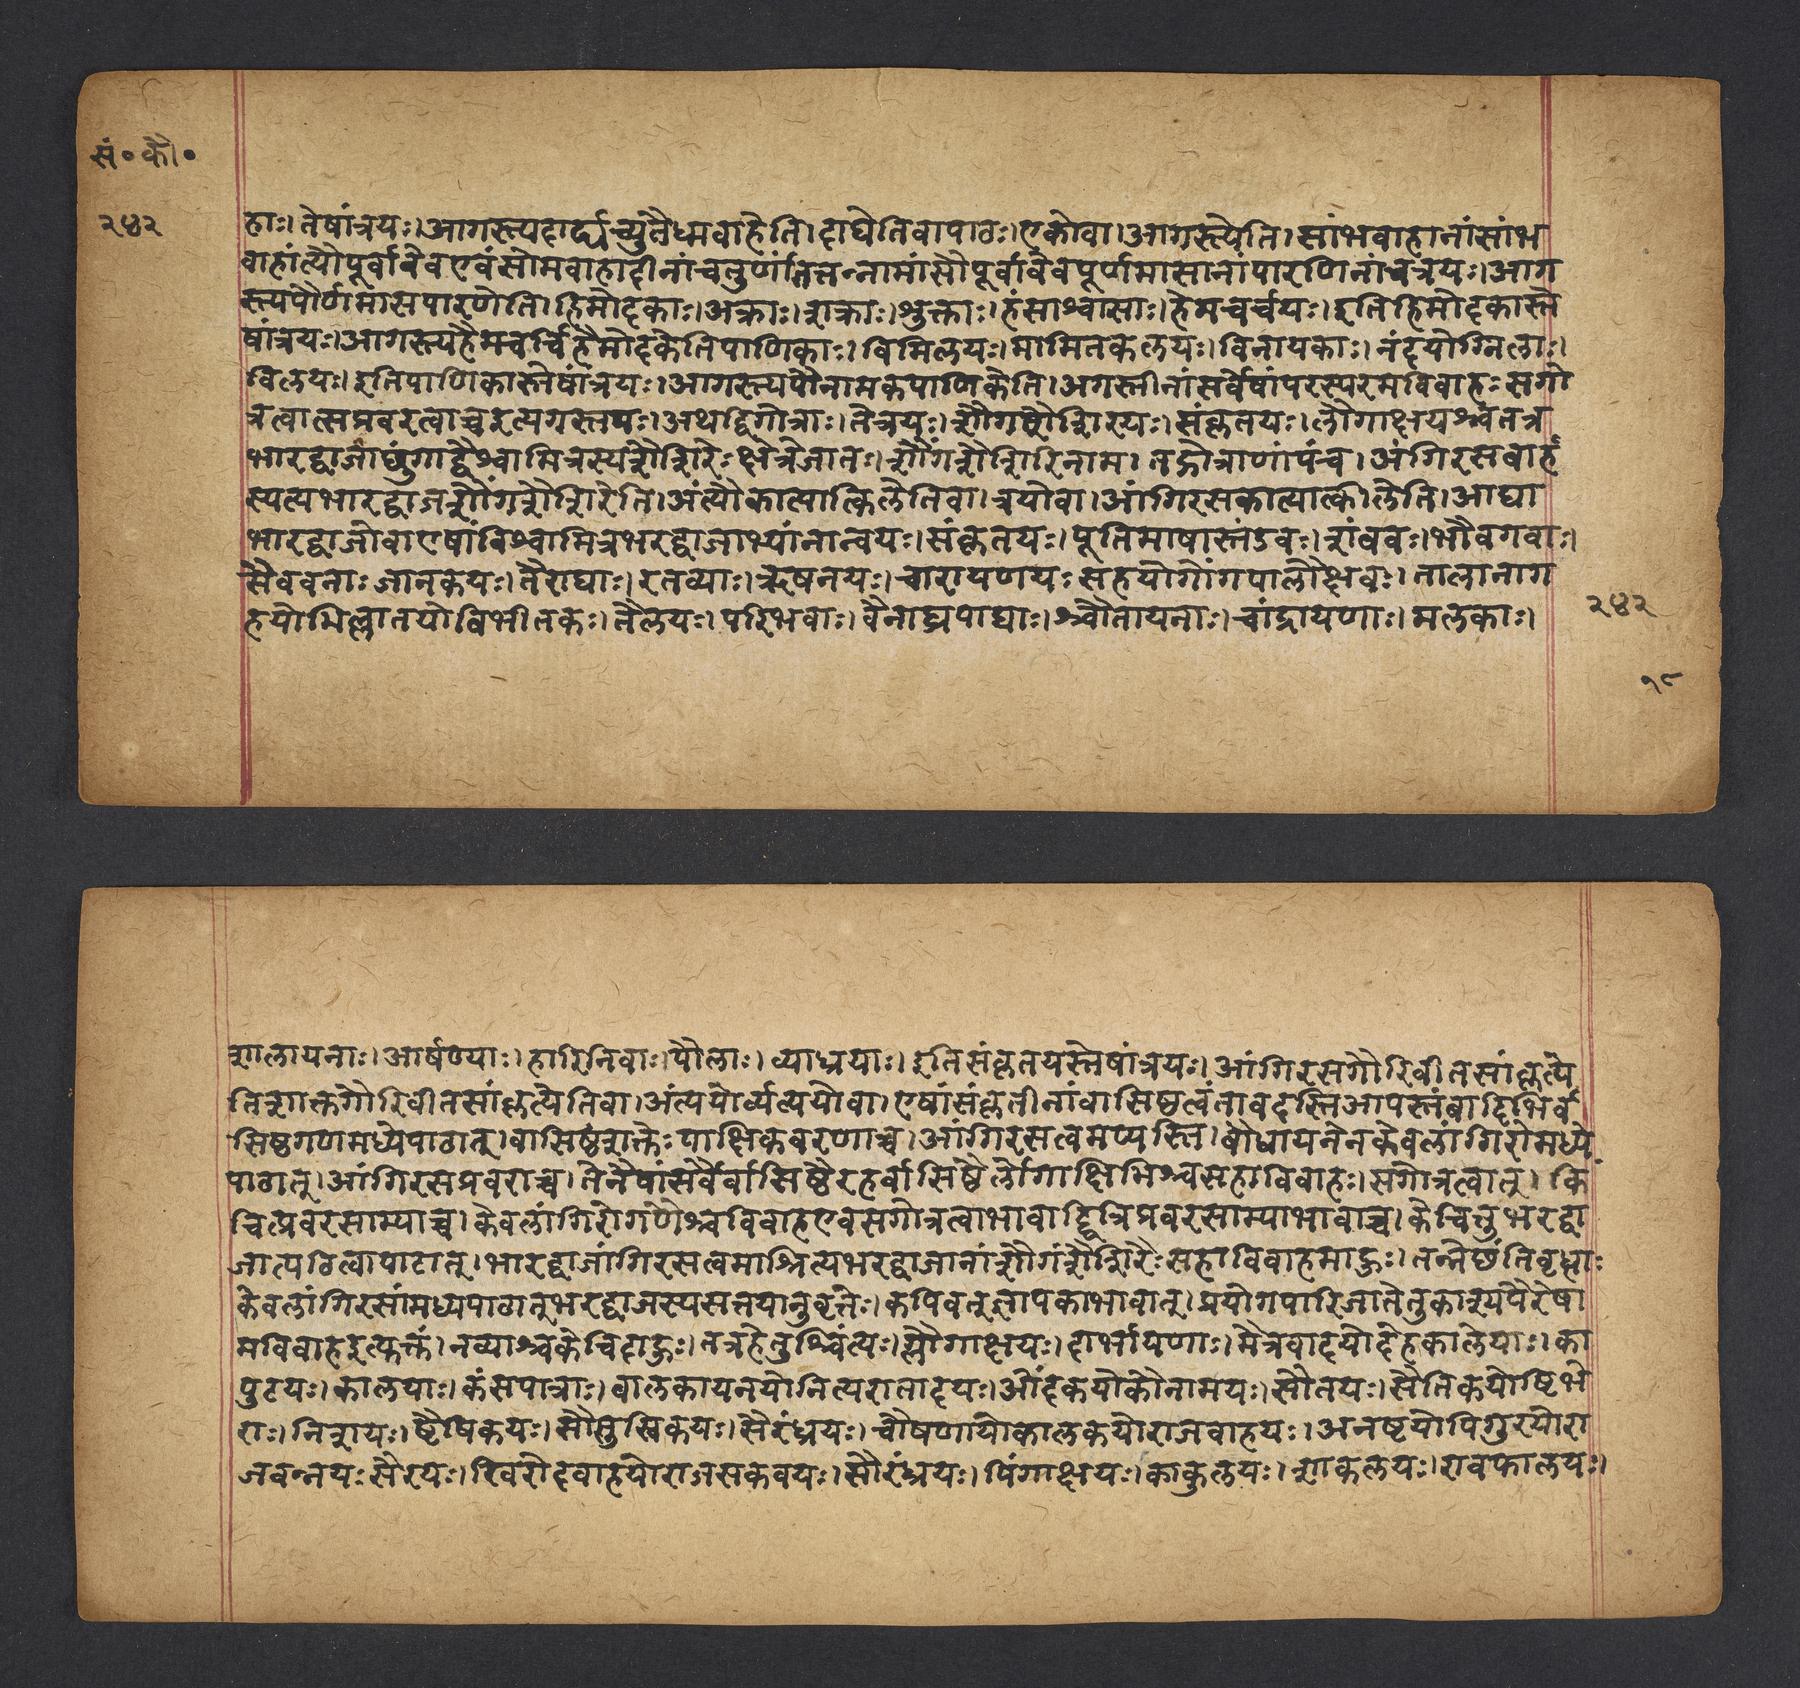 सं॰कौ॰
२४२
हाः। तेषांत्रयः।आगस्त्यदार्ढ्याच्युतैध्मवाहेति।दाघेतिवापाठः।एकोवा।आगस्त्येति।सांभवाहानांसांभ
वाहांत्यौपूर्वावेवएवंसोमवाहादीनांचतुर्णांतत्तन्नामांसौपूर्वावेवपूर्णमासानांपारणिनांचत्रयः।आग
स्त्यपौर्णमासपारणेति।हिमोदकाः।अक्राः।शक्राः।शुक्ताः।हंसाश्वासाः।हैमचर्चयः।इतिहिमोदकास्ते
षांत्रयः।आगस्त्यहैमचर्चिहैमोदकेतिपाणिकाः।विमिलयः।मामितकेलयः।विनायकाः।नंदयोग्निलाः।
विलयः।इतिपाणिकास्तेषांत्रयः।आगस्त्यपैनामकपाणिकेति।अगस्तीनांसर्वेषांपरस्परमविवाहःसगो
त्रत्वात्सप्रवरत्वाच्चइत्यगस्तयः।अथद्विगोत्राः।तेत्रयः।शौंगशैशिरयः।संकृतयः।लौगाक्षयश्चतत्र
भारद्वाजाछुंगाद्वैश्वामित्रस्यशैशिरेःक्षेत्रेजातः।शौंगशैशिरिनाम।तद्गोत्राणांपंच।अंगिरसबार्ह
स्पत्यभारद्वाजशौंगशैशिरेति।अंत्यौकात्यात्किलेतिवा।त्रयोवा।आंगिरसकात्यात्कीलेति।आद्या
भारद्वाजोवाएषांविश्वामित्रभरद्वाजाभ्यांनान्वयः।संकृतयः।पूतिमाषास्तंडवः।शंबवः।भौवगवाः।
सैववनाःजानकयः।तैराघाः।रतव्याः।ऋषनयः।चारायणयःसहयोगोंगपालीक्षिवः।तालानाग
हयोमिल्लातयोविभीतकः।तैलयः।परिभवाः।वैनाघ्रपाद्याः।श्वैतायनाः।चांद्रायणाः।मलकाः।
२४२
१८
शालायनाः।आर्षण्याः।हारिनिवाः।पौलाः।व्याघ्रयाः।इतिसंकृतयस्तेषांत्रयः।आंगिरसगौरिवीतसांकृत्ये
तिशाक्तगौरिवीतसांकृत्येतिवा।अंत्ययोर्व्यत्ययोवा।एषांसंकृतीनांवासिष्ठत्वंतावदस्तिआपस्तंबादिभिर्व
सिष्ठगणमध्येपाठात्।वासिष्ठशाक्तेःपाक्षिकवरणाच्च।आंगिरसत्वमप्यस्ति।बौधायनेनकेवलांगिरोमध्ये
पाठात्।आंगिरसप्रवराच्च।तेनैषांसर्वैर्वासिष्ठैरहर्वासिष्ठैर्लौगाक्षिभिश्चसहाविवाहः।सगोत्रत्वात्।किं
चित्प्रवरसाम्याच्च।केवलांगिरोगणैश्चविवाहएवसगोत्रत्वाभावाद्द्वित्रिप्रवरसाम्याभावाच्च।केचित्तुभरद्वा
जात्पठित्वापाटात्।भारद्वाजांगिरसत्वमाश्रित्यभरद्वाजानांशौंगशैशिरैःसहाविवाहमाहुः।तन्नेछंतिवृद्धाः
केवलांगिरसांमध्यपाठात्भरद्वाजस्यसत्तयानुवृत्तेः।कपिवत्ज्ञापकाभावात्।प्रयोगपारिजातेतुकाश्यपैरेषा
मविवाहइत्युक्तं।नव्याश्चकेचिदाहुः।तत्रहेतुश्चिंत्यः।लौगाक्षयः।दार्भायणाः।मैत्रवादयोदेहकालेयाः।का
पुटयः।कालयाः।कंसपात्राः।वालकायनयोनित्यरातादयः।औदकयोकोनामयः।सौतयः।सैतिकयोष्टिभे
राः।निशयः।ष्टैषिकयः।सौसुखिकयः।सैरंध्रयः।चौषणायोकालकयोराजवाहयः।अनष्टयोपिगुरयोरा
जवन्नयःसैरयः।रिवरोदवाहयोराजसकवयः।सौरंध्रयः।पिंगाक्षयः।काकुलयः।शाकलयः।रावफालयः।